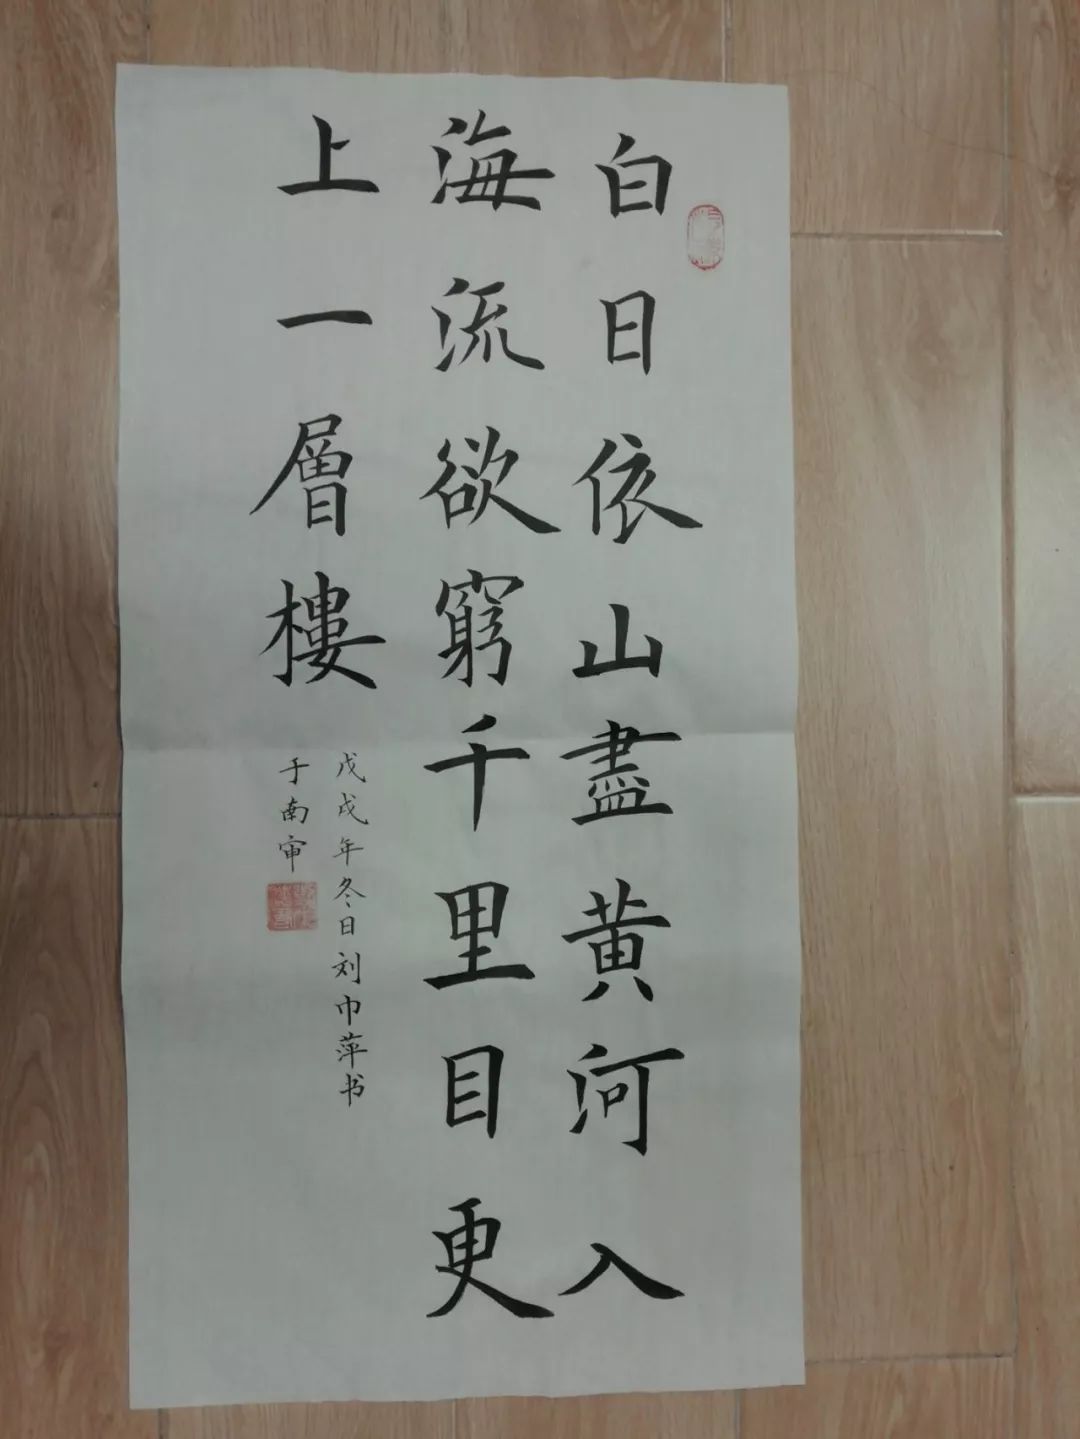 白日依山盡黄河入
海流欲窮千里目更
上一層樓
戊戌年冬日刘巾萍书
于南审